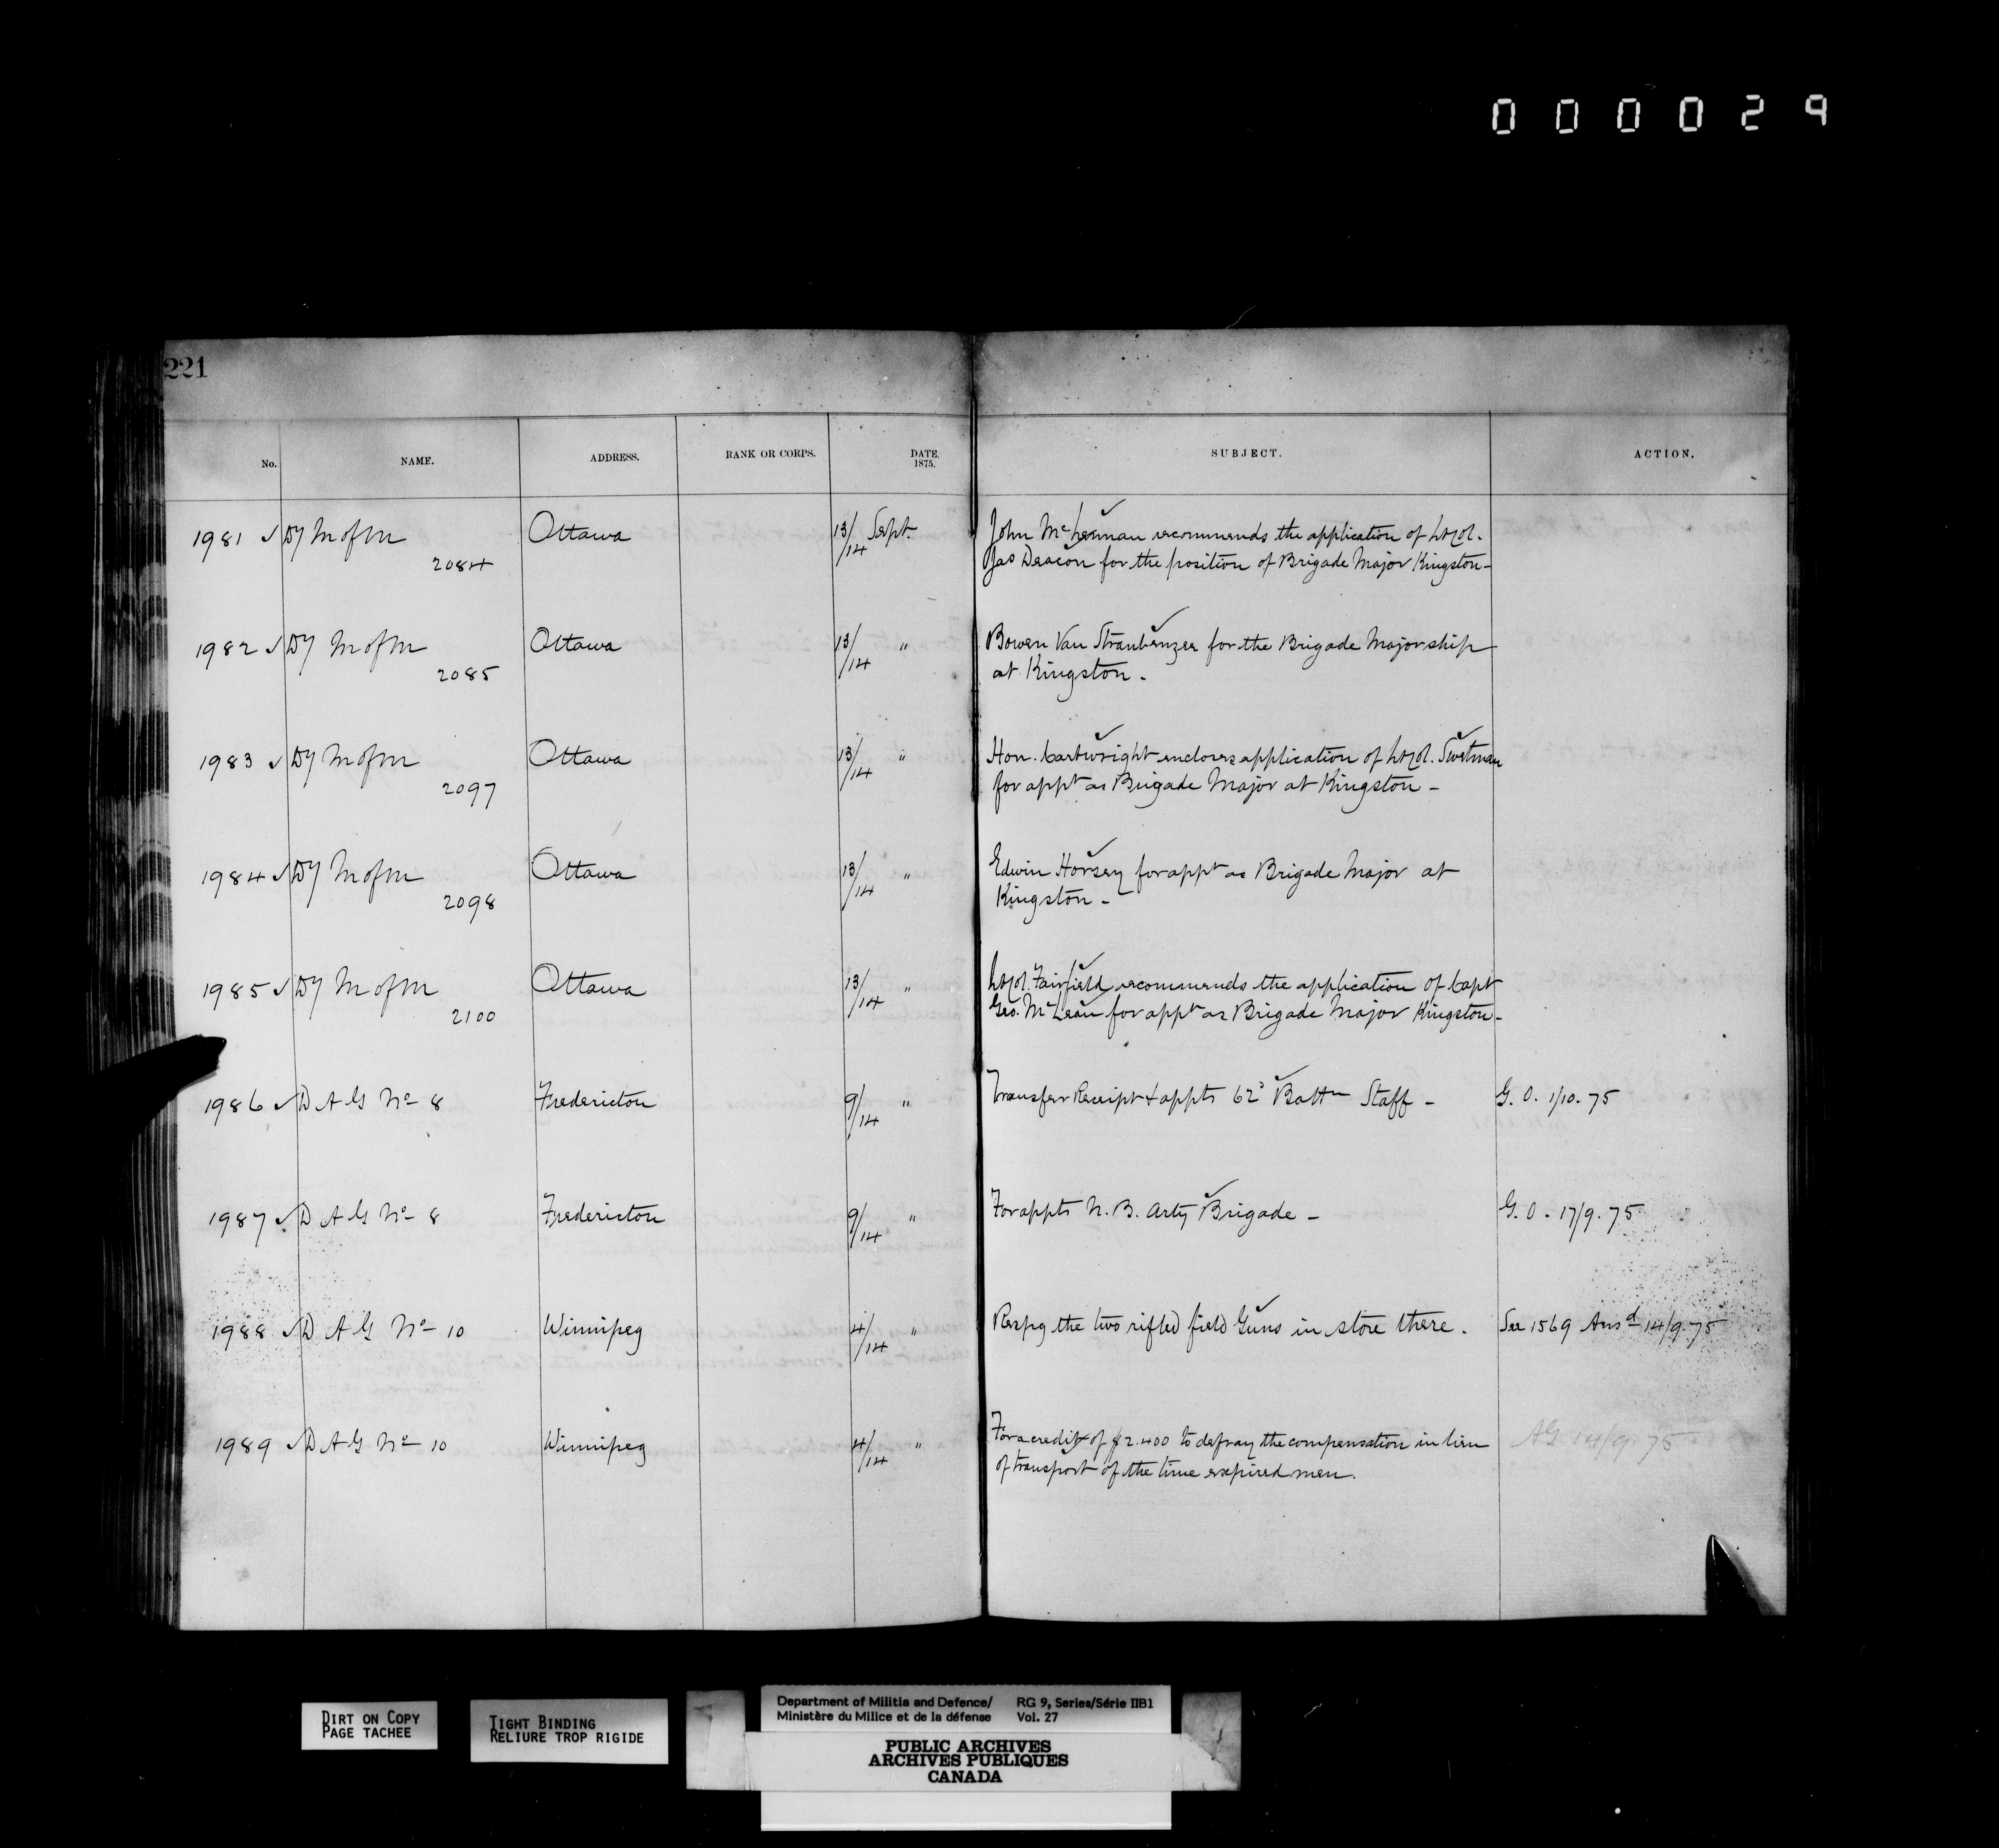 000029
221
No. NAME. ADDRESS. RANK OR CORPS. DATE. 1875. SUBJECT. ACTION.
1981 ✓ Dy M of M 2084 Ottawa 13/14 Sept. John McLennan recommends the application of Lt Col.
Jas Deacon for the position of Brigade Major Kingston-
1982 ✓ Dy M of M 2085 Ottawa 13/14 " Bowen Van Straubenzee for the Brigade Majorship
at Kingston.
1983 ✓ Dy M of M 2097 Ottawa 13/14 " Hon. Cartwright encloses application of Lt Col. Swetman
for appt as Brigade Major at Kingston -
1984 ✓ Dy M of M 2098 Ottawa 13/14 " Edwin Horsey for appt as Brigade Major at
Kingston -
1985 ✓ Dy M of M 2100 Ottawa 13/14 " Lt Col. Fairfield recommends the application of Capt
Geo. McLean for appt as Brigade Major Kingston-
1986 ✓ D A G No 8 Fredericton 9/14 " Transfer Receipt & appts 62d Battn Staff - G. O. 1/10. 75
1987 ✓ D A G No 8 Fredericton 9/14 " For appts N. B. Arty Brigade - G. O. 17/9. 75
1988 ✓ D A G No 10 Winnipeg 4/14 " Respg the two rifled field Guns in store there. See 1569 Ansd 14/9. 75
1989 ✓ D A G No 10 Winnipeg 4/14 " For a credit of $2.400 to defray the compensation in lieu AG 14/9. 75
of transport of the time expired men.
DIRT ON COPY
PAGE TACHEE
TIGHT BINDING
RELIURE TROP RIGIDE
Department of Militia and Defence/ RG 9, Series/Série IIB1
Ministère du Milice et de la défense Vol. 27
PUBLIC ARCHIVES
ARCHIVES PUBLIQUES
CANADA